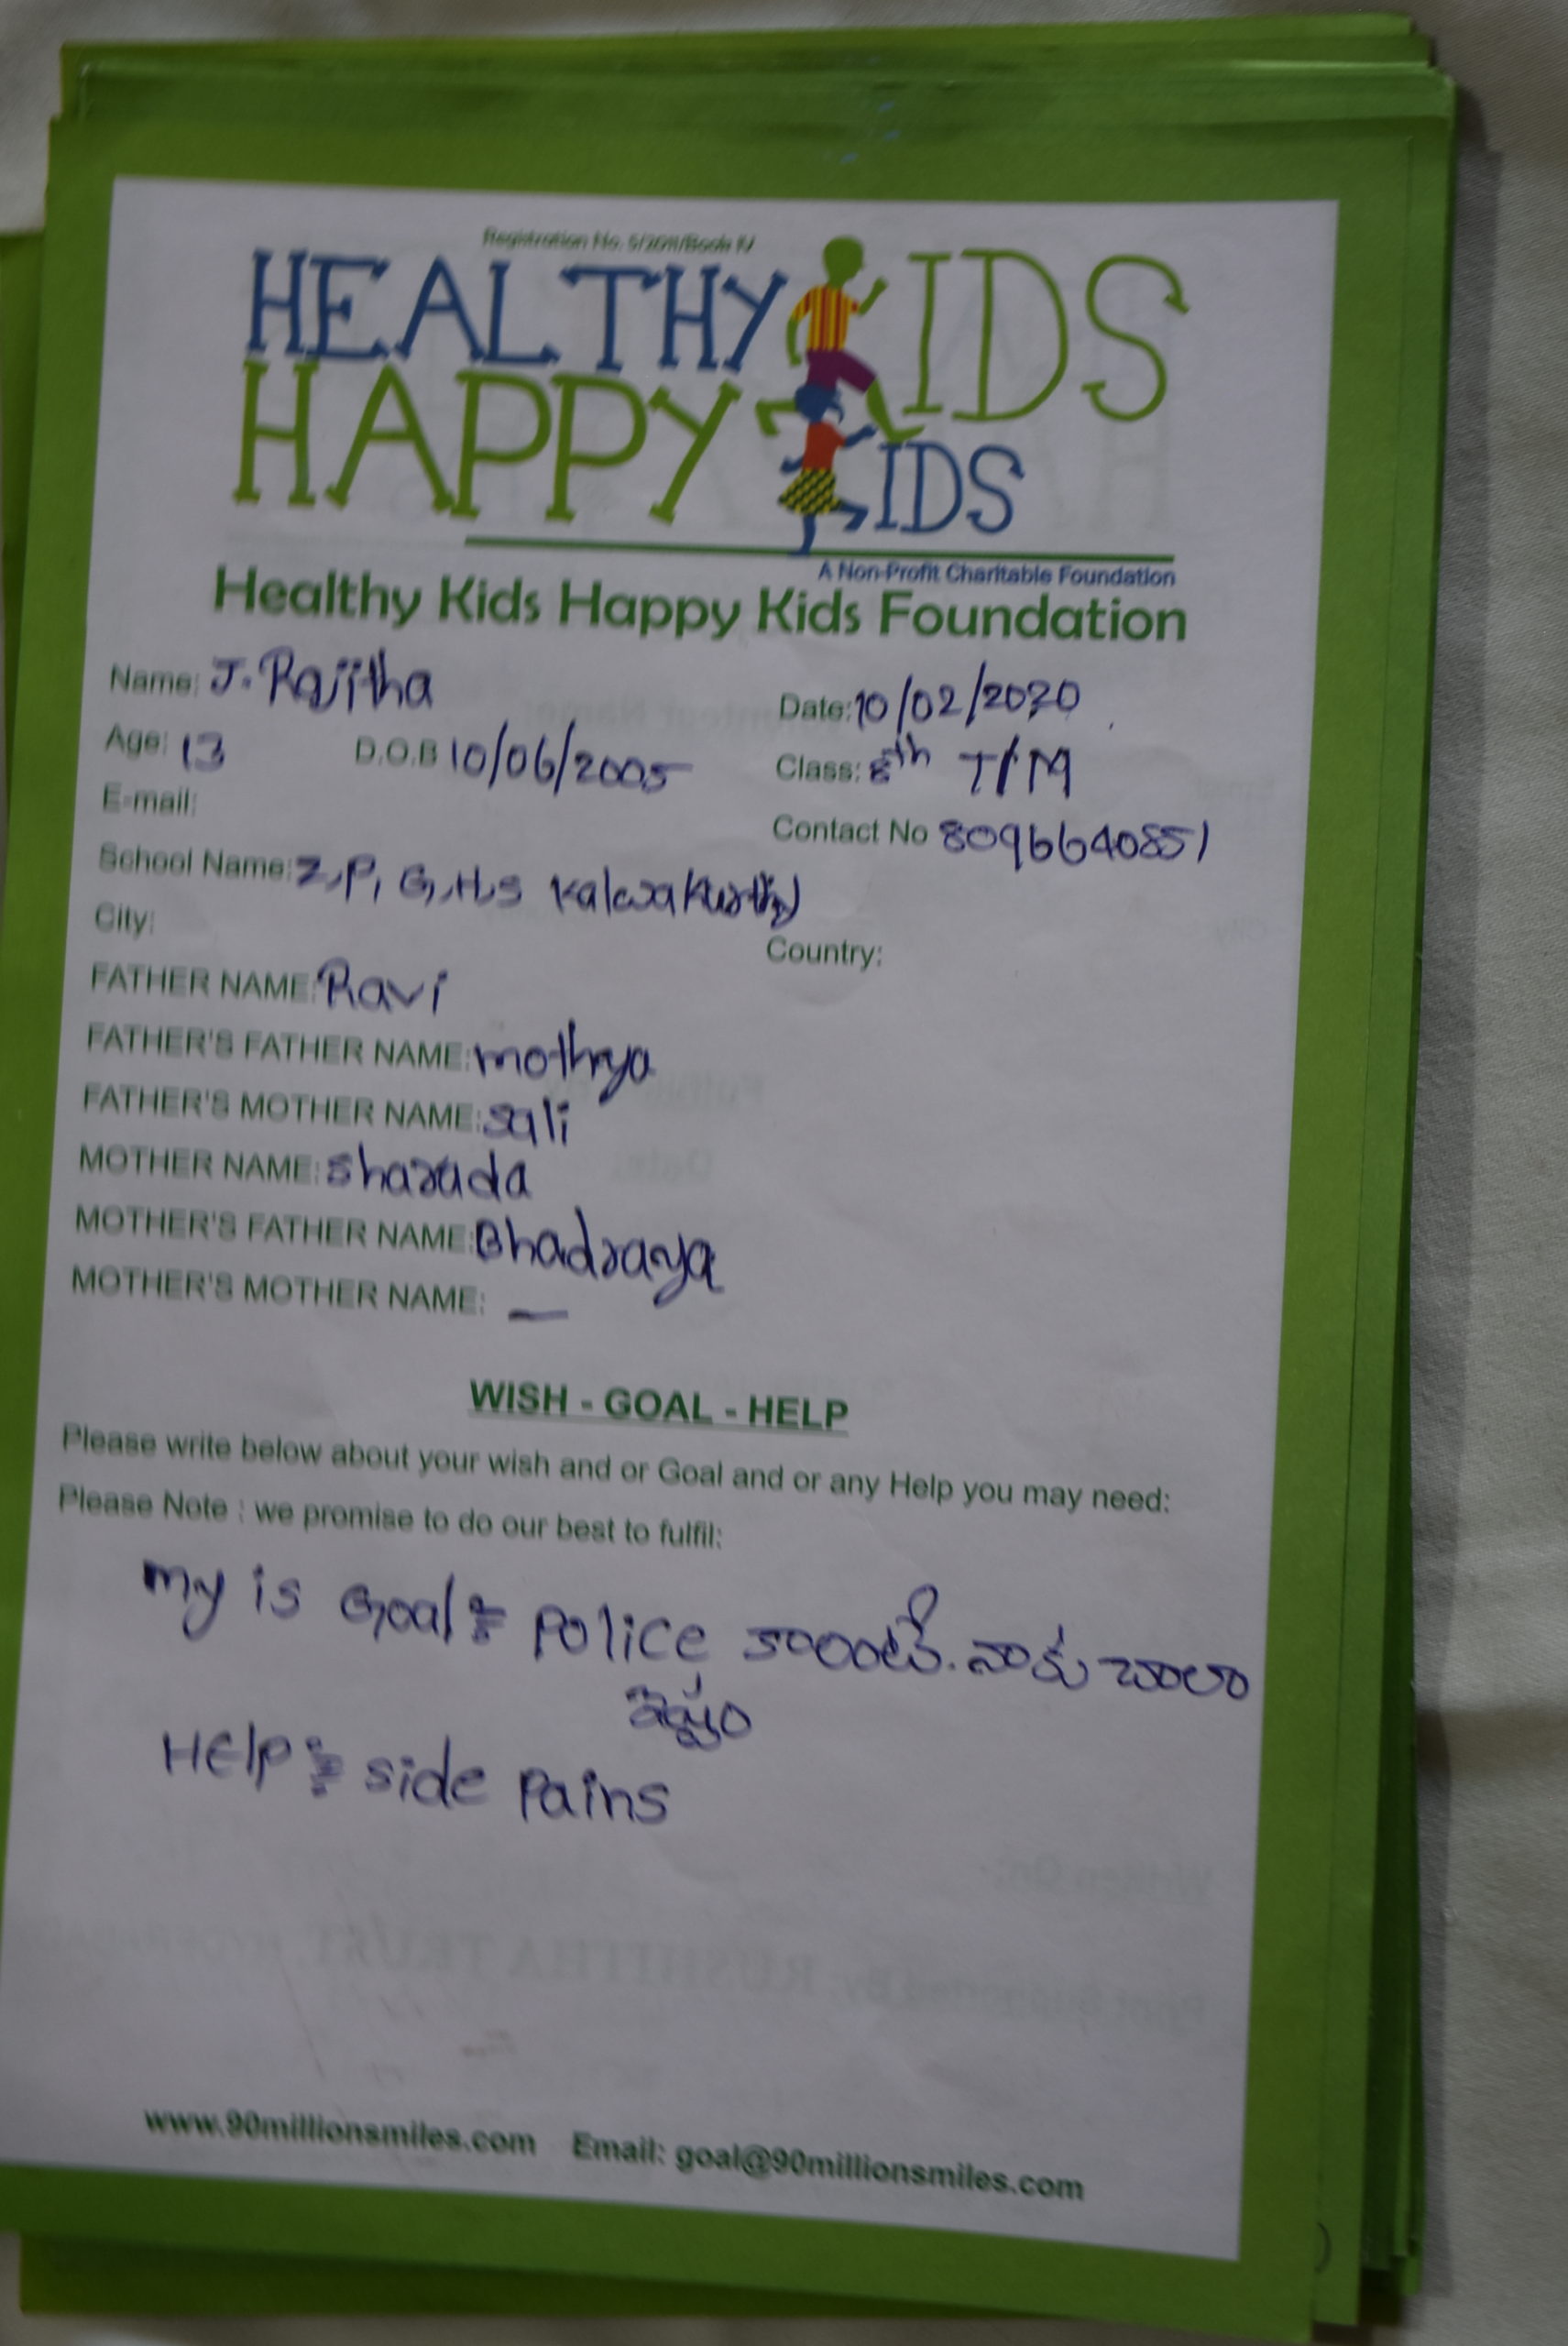 Registration No. 5/2011/Book IV
HEALTHY KIDS
HAPPY KIDS
A Non-Profit Charitable Foundation
Healthy Kids Happy Kids Foundation
Name: J. Rajitha Date: 10/02/2020
Age: 13 D.O.B 10/06/2005 Class: 8th T/M
E-mail: Contact No 8096640851
School Name: Z, P, G, H, S Kalwakurthy
City: Country:
FATHER NAME: Ravi
FATHER'S FATHER NAME: mothya
FATHER'S MOTHER NAME: Sali
MOTHER NAME: Sharada
MOTHER'S FATHER NAME: Bhadraya
MOTHER'S MOTHER NAME: —
WISH - GOAL - HELP
Please write below about your wish and or Goal and or any Help you may need:
Please Note : we promise to do our best to fulfil:
my is Goal :- Police కాలంటే. నాకు చాలా
ఇష్టం
Help :- side Pains
www.90millionsmiles.com Email: goal@90millionsmiles.com